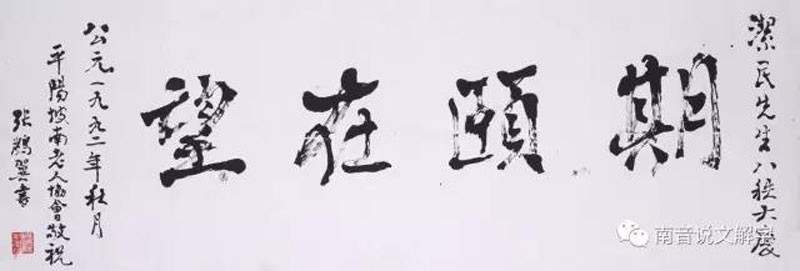 潔民先生八秩大慶
期頤在望
公元一九九二年秋月
平陽坡南老人協會敬祝
张鵬翼書
南音说文解字